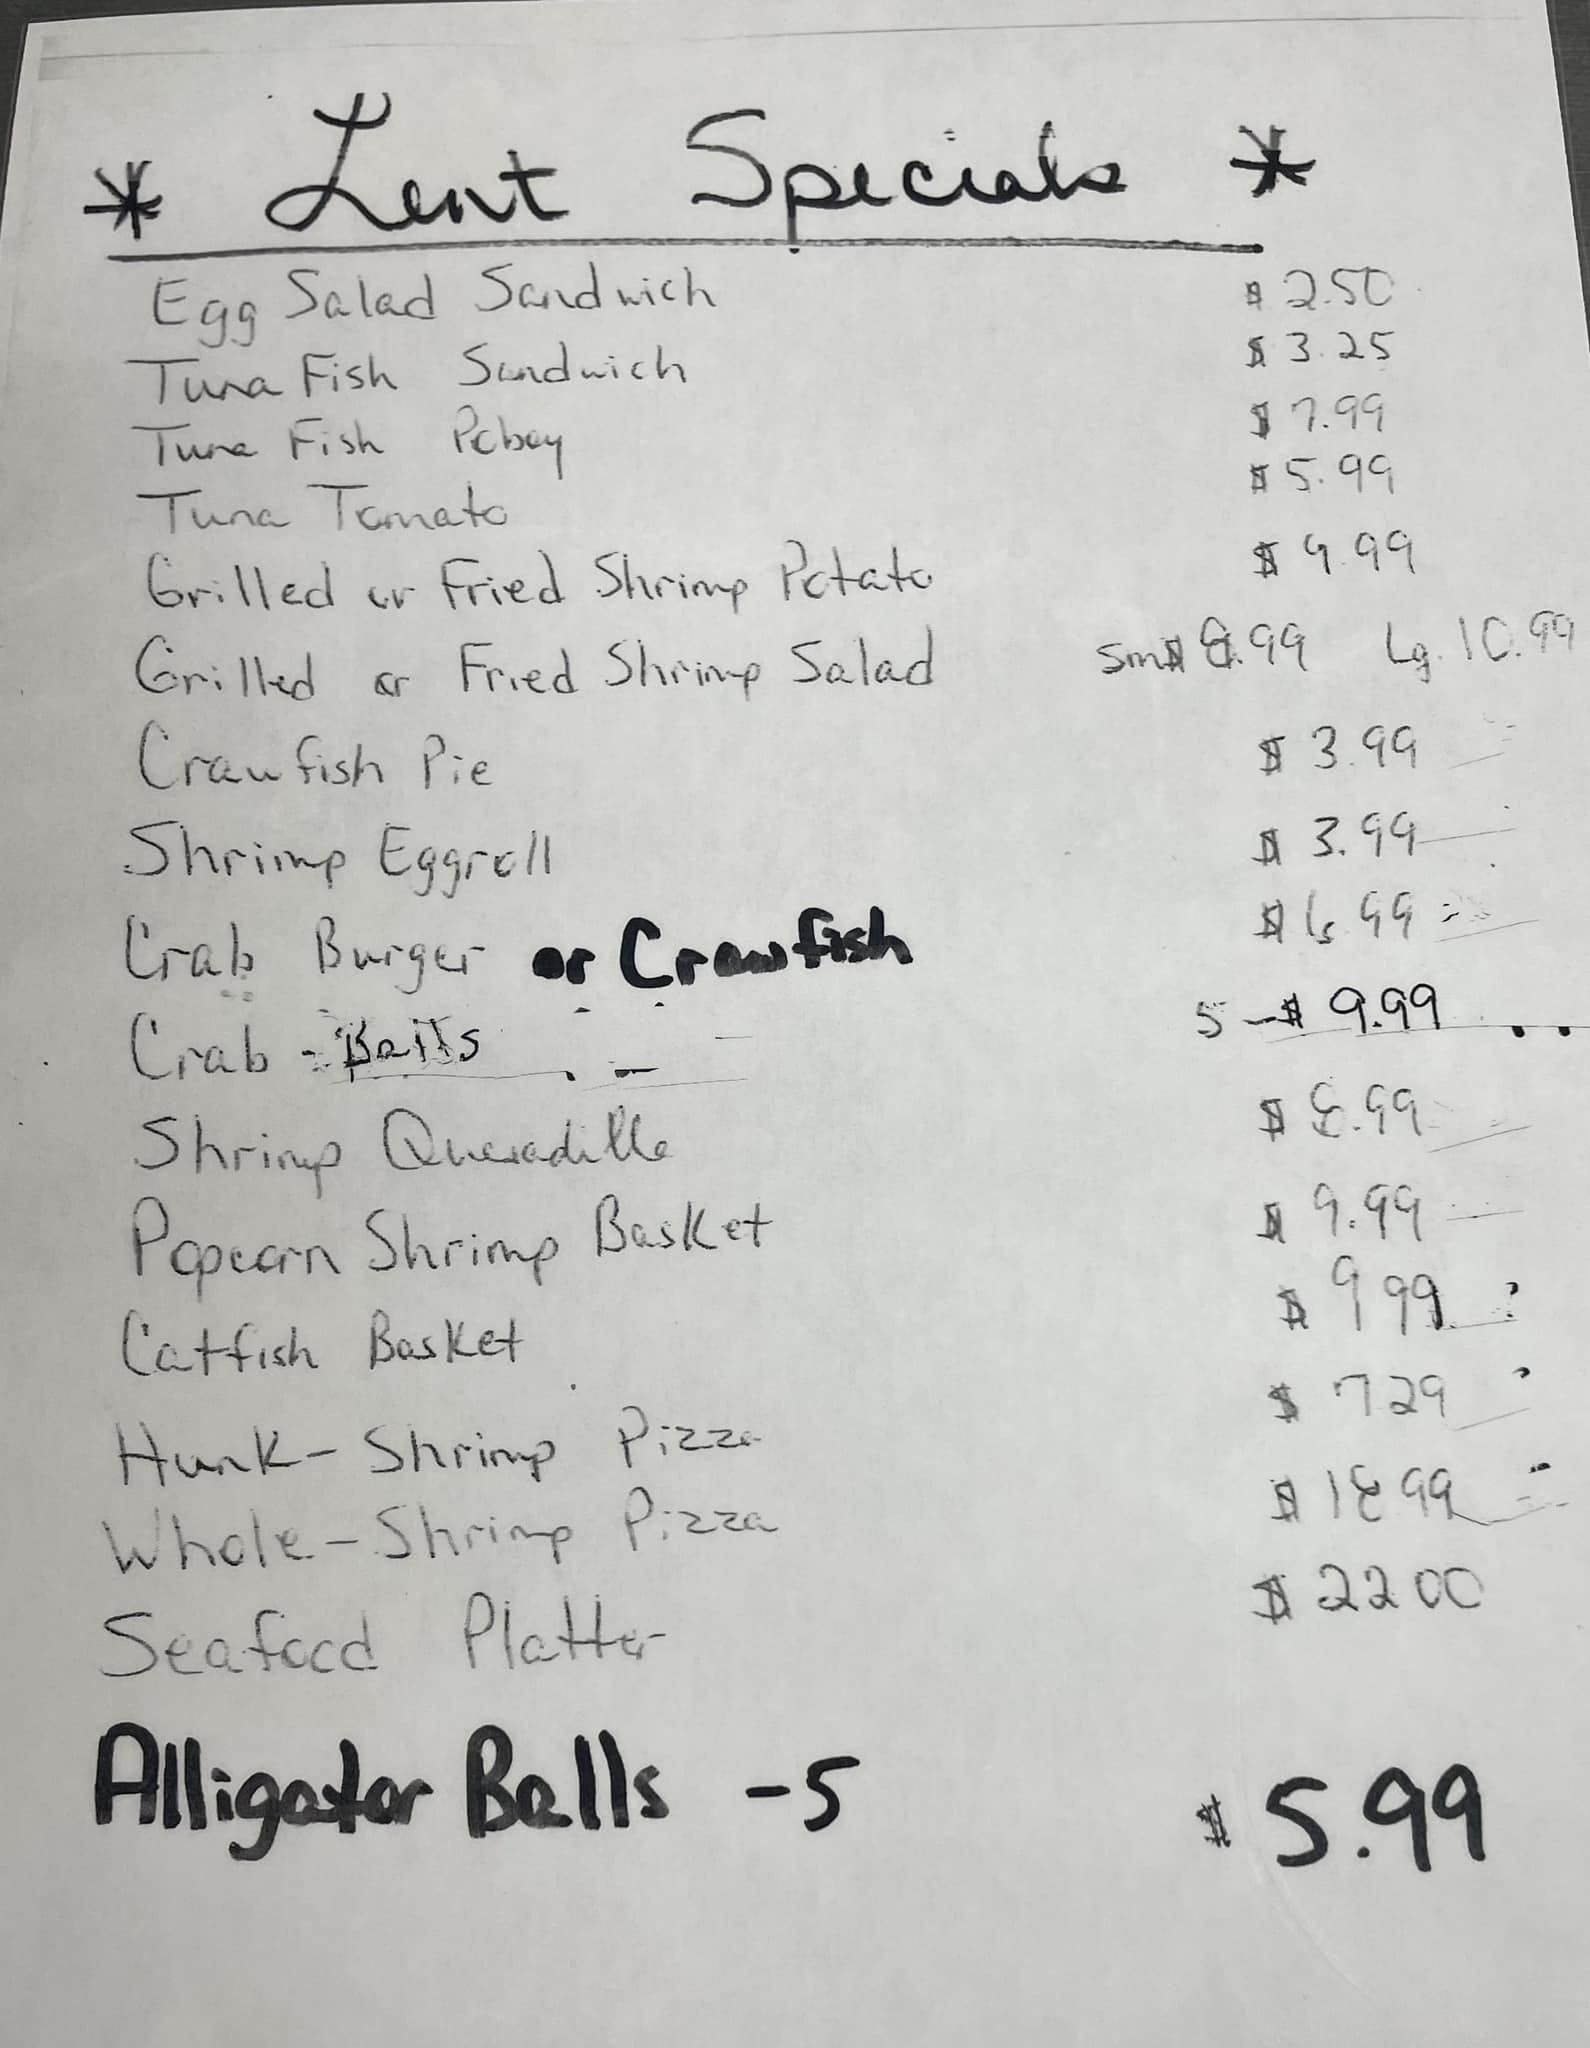 * Lent Specials *
Egg Salad Sandwich $ 2.50
Tuna Fish Sandwich $ 3.25
Tuna Fish Poboy $ 7.99
Tuna Tomato $ 5.99
Grilled or Fried Shrimp Potato $ 9.99
Grilled or Fried Shrimp Salad Sm $ 8.99 Lg. 10.99
Crawfish Pie $ 3.99
Shrimp Eggroll $ 3.99
Crab Burger or Crawfish $ 6.99
Crab - Balls 5 - $ 9.99
Shrimp Quesadilla $ 8.99
Popcorn Shrimp Basket $ 9.99
Catfish Basket $ 9.99
Hunk - Shrimp Pizza $ 7.29
Whole - Shrimp Pizza $ 18.99
Seafood Platter $ 22.00
Alligator Balls - 5 $ 5.99